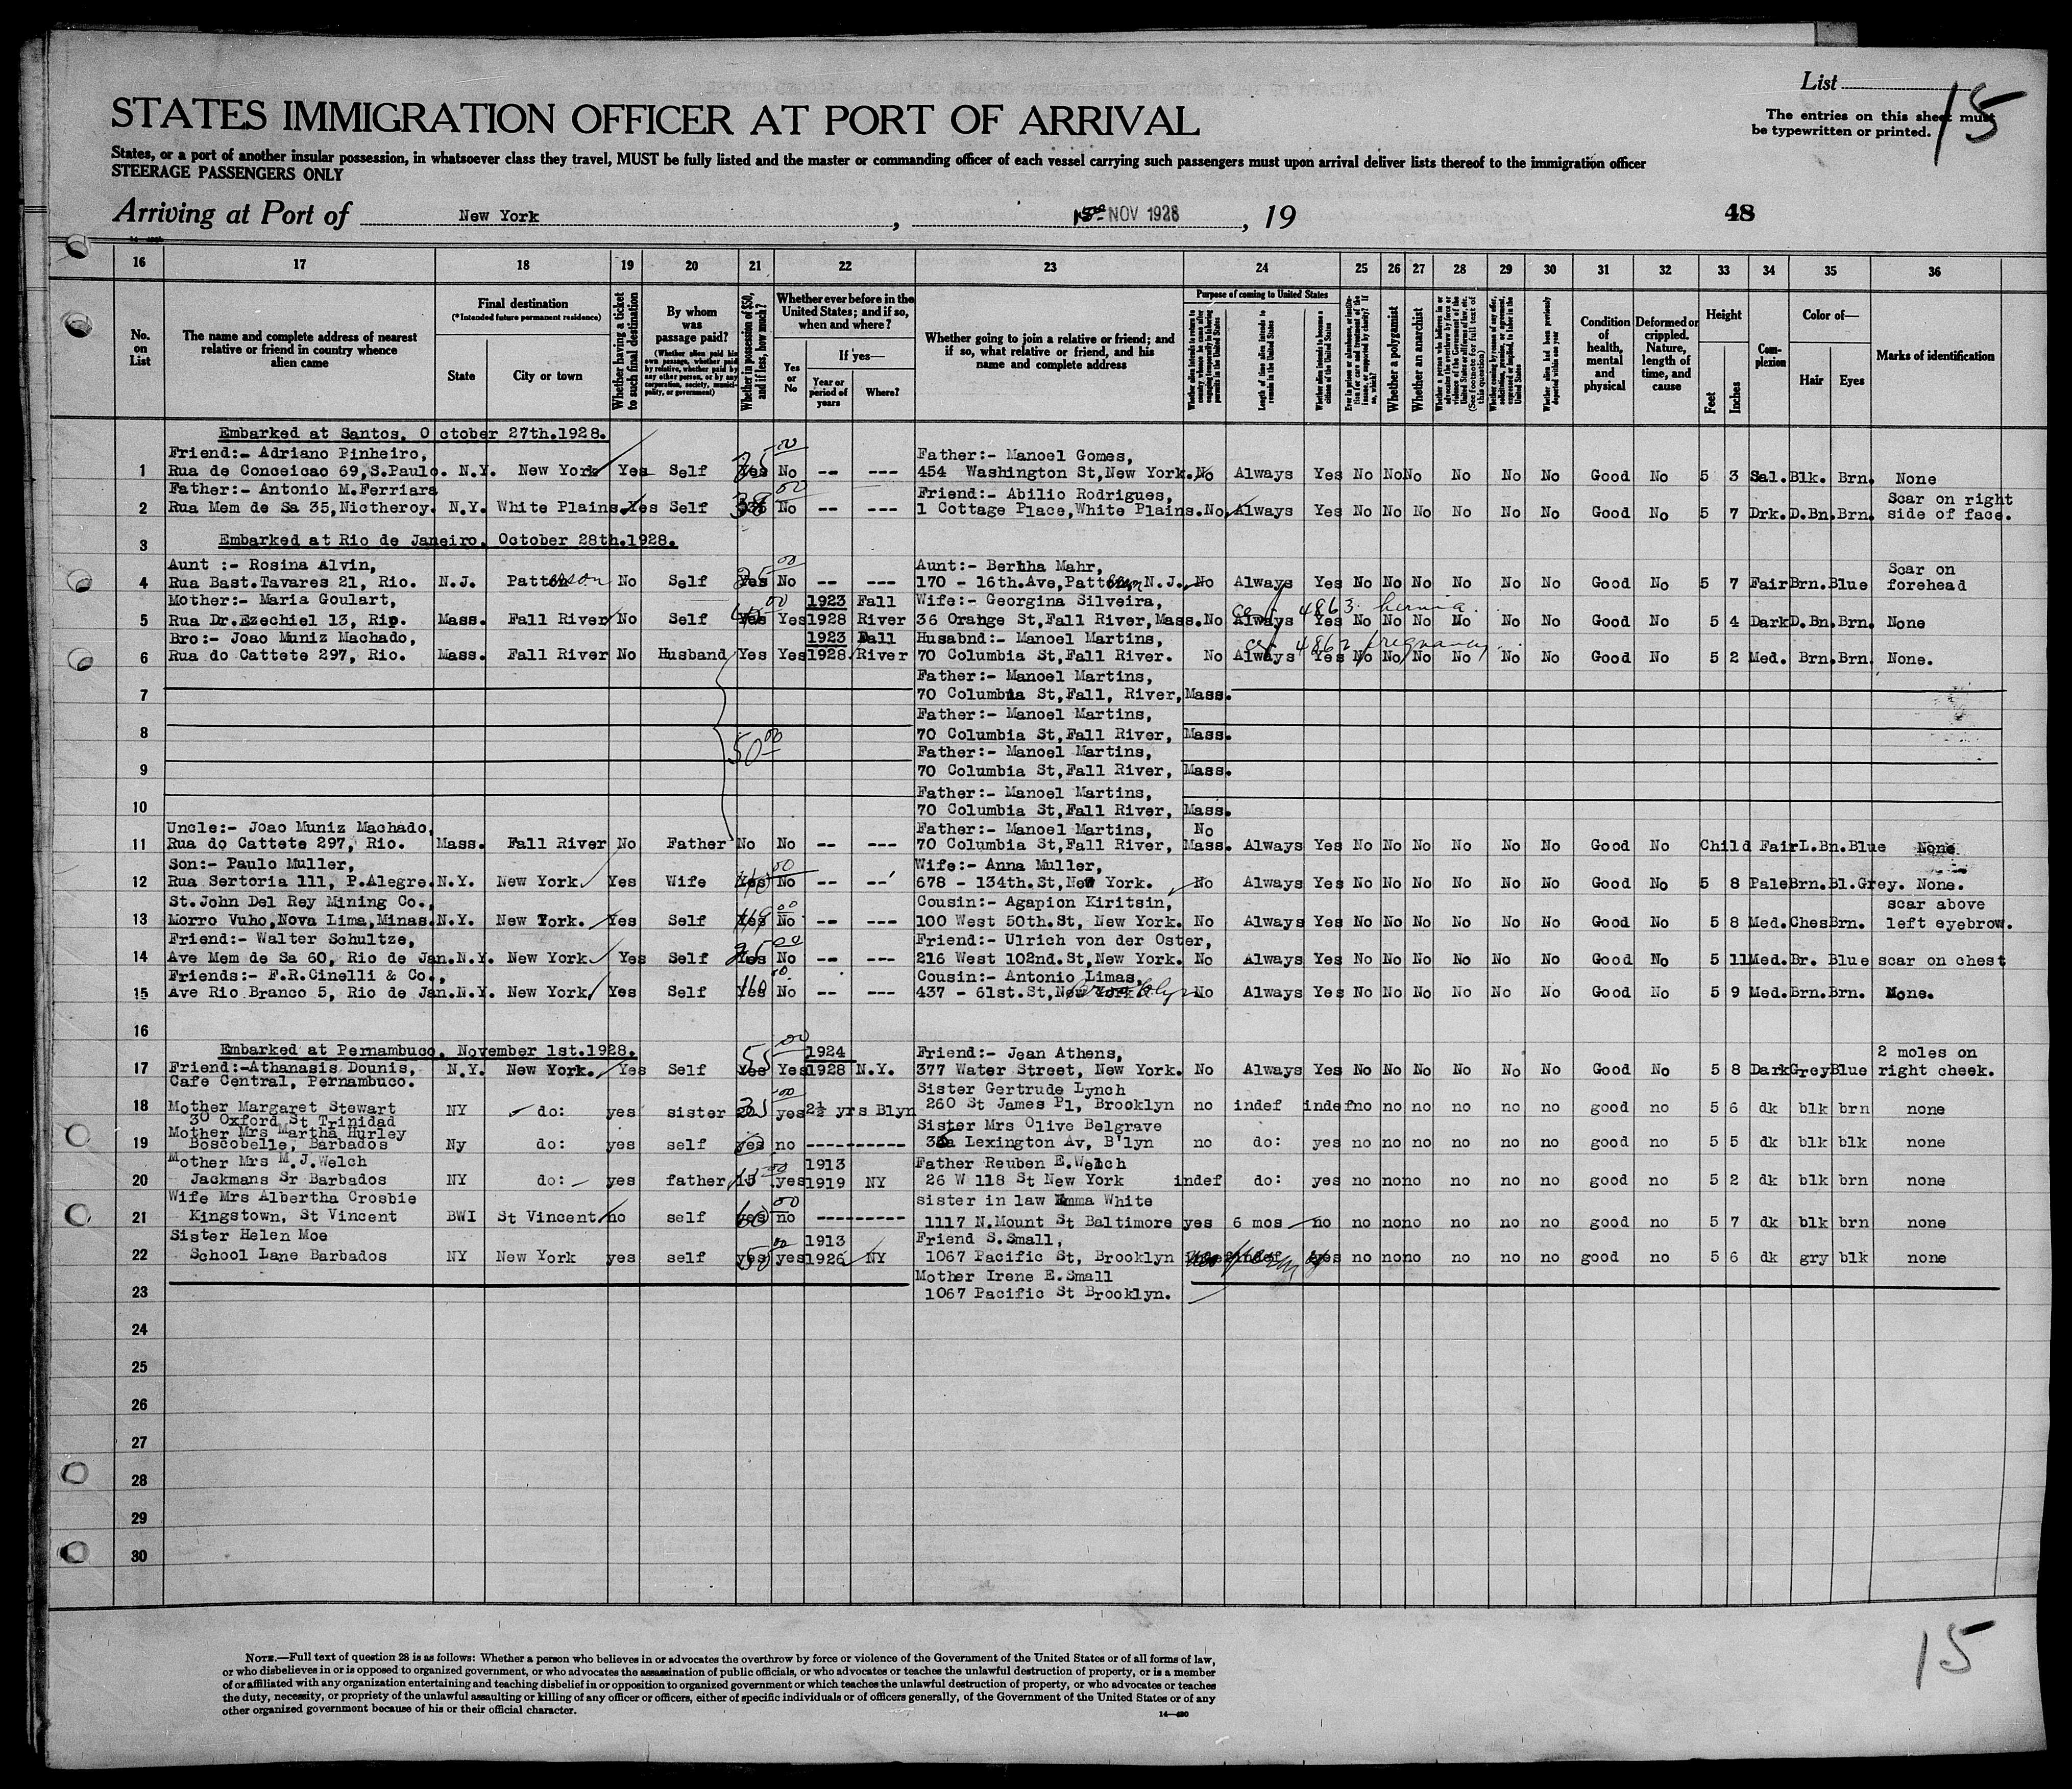 List
15
The entries on this sheet must
be typewritten or printed.
STATES IMMIGRATION OFFICER AT PORT OF ARRIVAL
States, or a port of another insular possession, in whatsoever class they travel, MUST be fully listed and the master or commanding officer of each vessel carrying such passengers must upon arrival deliver lists thereof to the immigration officer
STEERAGE PASSENGERS ONLY
Arriving at Port of New York , NOV 1928 , 19 48
16 17 18 19 20 21 22 23 24 25 26 27 28 29 30 31 32 33 34 35 36
No. on List
The name and complete address of nearest relative or friend in country whence alien came
Final destination
(*Intended future permanent residence)
State City or town
Whether having a ticket to such final destination
By whom was passage paid?
(Whether alien paid his own passage, whether paid by relative, whether paid by any other person, or by any corporation, society, municipality, or government)
Whether in possession of $50, and if less, how much?
Whether ever before in the United States; and if so, when and where?
Yes or No
If yes—
Year or period of years
Where?
Whether going to join a relative or friend; and if so, what relative or friend, and his name and complete address
Purpose of coming to United States
Length of time alien intends to remain in the United States
Whether alien intends to become a citizen of the United States
Whether a polygamist
Whether an anarchist
Whether alien had been previously deported within one year
Condition of health, mental and physical
Deformed or crippled. Nature, length of time, and cause
Height
Feet Inches
Complexion
Color of—
Hair Eyes
Marks of identification
Embarked at Santos, October 27th.1928.
Friend:- Adriano Pinheiro, Father:- Manoel Gomes,
1 Rua de Conceicao 69,S.Paulo. N.Y. New York Yes Self Yes No -- --- 454 Washington St,New York. No Always Yes No No No No No No Good No 5 3 Sal. Blk. Brn. None
Father:- Antonio M.Ferriara Friend:- Abilio Rodrigues, Scar on right
2 Rua Mem de Sa 35,Nictheroy. N.Y. White Plains. Yes Self No -- --- 1 Cottage Place,White Plains. No Always Yes No No No No No No Good No 5 7 Drk. D.Bn. Brn. side of face.
3 Embarked at Rio de Janeiro, October 28th.1928.
Aunt :- Rosina Alvin, Aunt:- Bertha Mahr, Scar on
4 Rua Bast.Tavares 21, Rio. N.J. Patterson No Self Yes No -- --- 170 - 16th.Ave,Patterson N.J. No Always Yes No No No No No No Good No 5 7 Fair Brn. Blue forehead
Mother:- Maria Goulart, 1923 Fall Wife:- Georgina Silveira, 4863 hernia
5 Rua Dr.Ezechiel 13, Rio. Mass. Fall River No Self Yes Yes 1928 River 36 Orange St,Fall River,Mass. No Always Yes No No No No No No Good No 5 4 Dark D.Bn. Brn. None
Bro:- Joao Muniz Machado, 1923 Fall Husabnd:- Manoel Martins, 4862 pregnancy
6 Rua do Cattete 297, Rio. Mass. Fall River No Husband Yes Yes 1928 River 70 Columbia St,Fall River. No Always Yes No No No No No No Good No 5 2 Med. Brn. Brn. None.
Father:- Manoel Martins,
7 70 Columbia St,Fall, River,Mass.
Father:- Manoel Martins,
8 70 Columbia St,Fall River, Mass.
50 00
Father:- Manoel Martins,
9 70 Columbia St,Fall River, Mass.
Father:- Manoel Martins,
10 70 Columbia St,Fall River, Mass.
Uncle:- Joao Muniz Machado, Father:- Manoel Martins, No
11 Rua do Cattete 297, Rio. Mass. Fall River No Father No No -- --- 70 Columbia St,Fall River, Mass. Always Yes No No No No No No Good No Child Fair L.Bn. Blue None
Son:- Paulo Muller, Wife:- Anna Muller,
12 Rua Sertoria 111, P.Alegre. N.Y. New York. Yes Wife Yes No -- -- 678 - 134th.St,New York. No Always Yes No No No No No No Good No 5 8 Pale Brn. Bl.Grey. None.
St.John Del Rey Mining Co., Cousin:- Agapion Kiritsin, scar above
13 Morro Vuho,Nova Lima,Minas. N.Y. New York. Yes Self Yes No -- --- 100 West 50th.St, New York. No Always Yes No No No No No No Good No 5 8 Med. Ches Brn. left eyebrow.
Friend:- Walter Schultze, Friend:- Ulrich von der Oster,
14 Ave Mem de Sa 60, Rio de Jan. N.Y. New York Yes Self Yes No -- --- 216 West 102nd.St,New York. No Always Yes No No No No No No Good No 5 11 Med. Br. Blue scar on chest
Friends:- F.R.Cinelli & Co., Cousin:- Antonio Limas,
15 Ave Rio Branco 5, Rio de Jan. N.Y. New York Yes Self Yes No -- --- 437 - 61st.St,New York Brooklyn No Always Yes No No No No No No Good No 5 9 Med. Brn. Brn. None.
16
Embarked at Pernambuco, November 1st.1928. 1924 Friend:- Jean Athens, 2 moles on
17 Friend:-Athanasis Dounis, N.Y. New York. Yes Self Yes Yes 1928 N.Y. 377 Water Street, New York. No Always Yes No No No No No No Good No 5 8 Dark Grey Blue right cheek.
Cafe Central, Pernambuco. Sister Gertrude Lynch
18 Mother Margaret Stewart NY do: yes sister yes 2½ yrs Blyn 260 St James Pl, Brooklyn no indef indef no no no no no no good no 5 6 dk blk brn none
30 Oxford St Trinidad
Mother Mrs Martha Hurley Sister Mrs Olive Belgrave
19 Boscobelle, Barbados Ny do: yes self yes no ---------- Lexington Av, B'lyn no do: yes no no no no no no good no 5 5 dk blk blk none
Mother Mrs M.J.Welch 1913 Father Reuben E.Welch
20 Jackmans Sr Barbados NY do:- yes father 15 yes 1919 NY 26 W 118 St New York indef do: yes no no no no no no good no 5 2 dk blk brn none
Wife Mrs Albertha Crosbie sister in law Emma White
21 Kingstown, St Vincent BWI St Vincent no self yes no --------- 1117 N.Mount St Baltimore yes 6 mos no no no no no no no good no 5 7 dk blk brn none
Sister Helen Moe 1913 Friend S.Small,
22 School Lane Barbados NY New York yes self yes yes 1926 NY 1067 Pacific St, Brooklyn yes no no no no no no good no 5 6 dk gry blk none
Mother Irene E.Small
23 1067 Pacific St Brooklyn.
24
25
26
27
28
29
30
15
NOTE.—Full text of question 28 is as follows: Whether a person who believes in or advocates the overthrow by force or violence of the Government of the United States or of all forms of law,
or who disbelieves in or is opposed to organized government, or who advocates the assassination of public officials, or who advocates or teaches the unlawful destruction of property, or is a member
of or affiliated with any organization entertaining and teaching disbelief in or opposition to organized government or which teaches the unlawful destruction of property, or who advocates or teaches
the duty, necessity, or propriety of the unlawful assaulting or killing of any officer or officers, either of specific individuals or of officers generally, of the Government of the United States or of any
other organized government because of his or their official character.
14—430